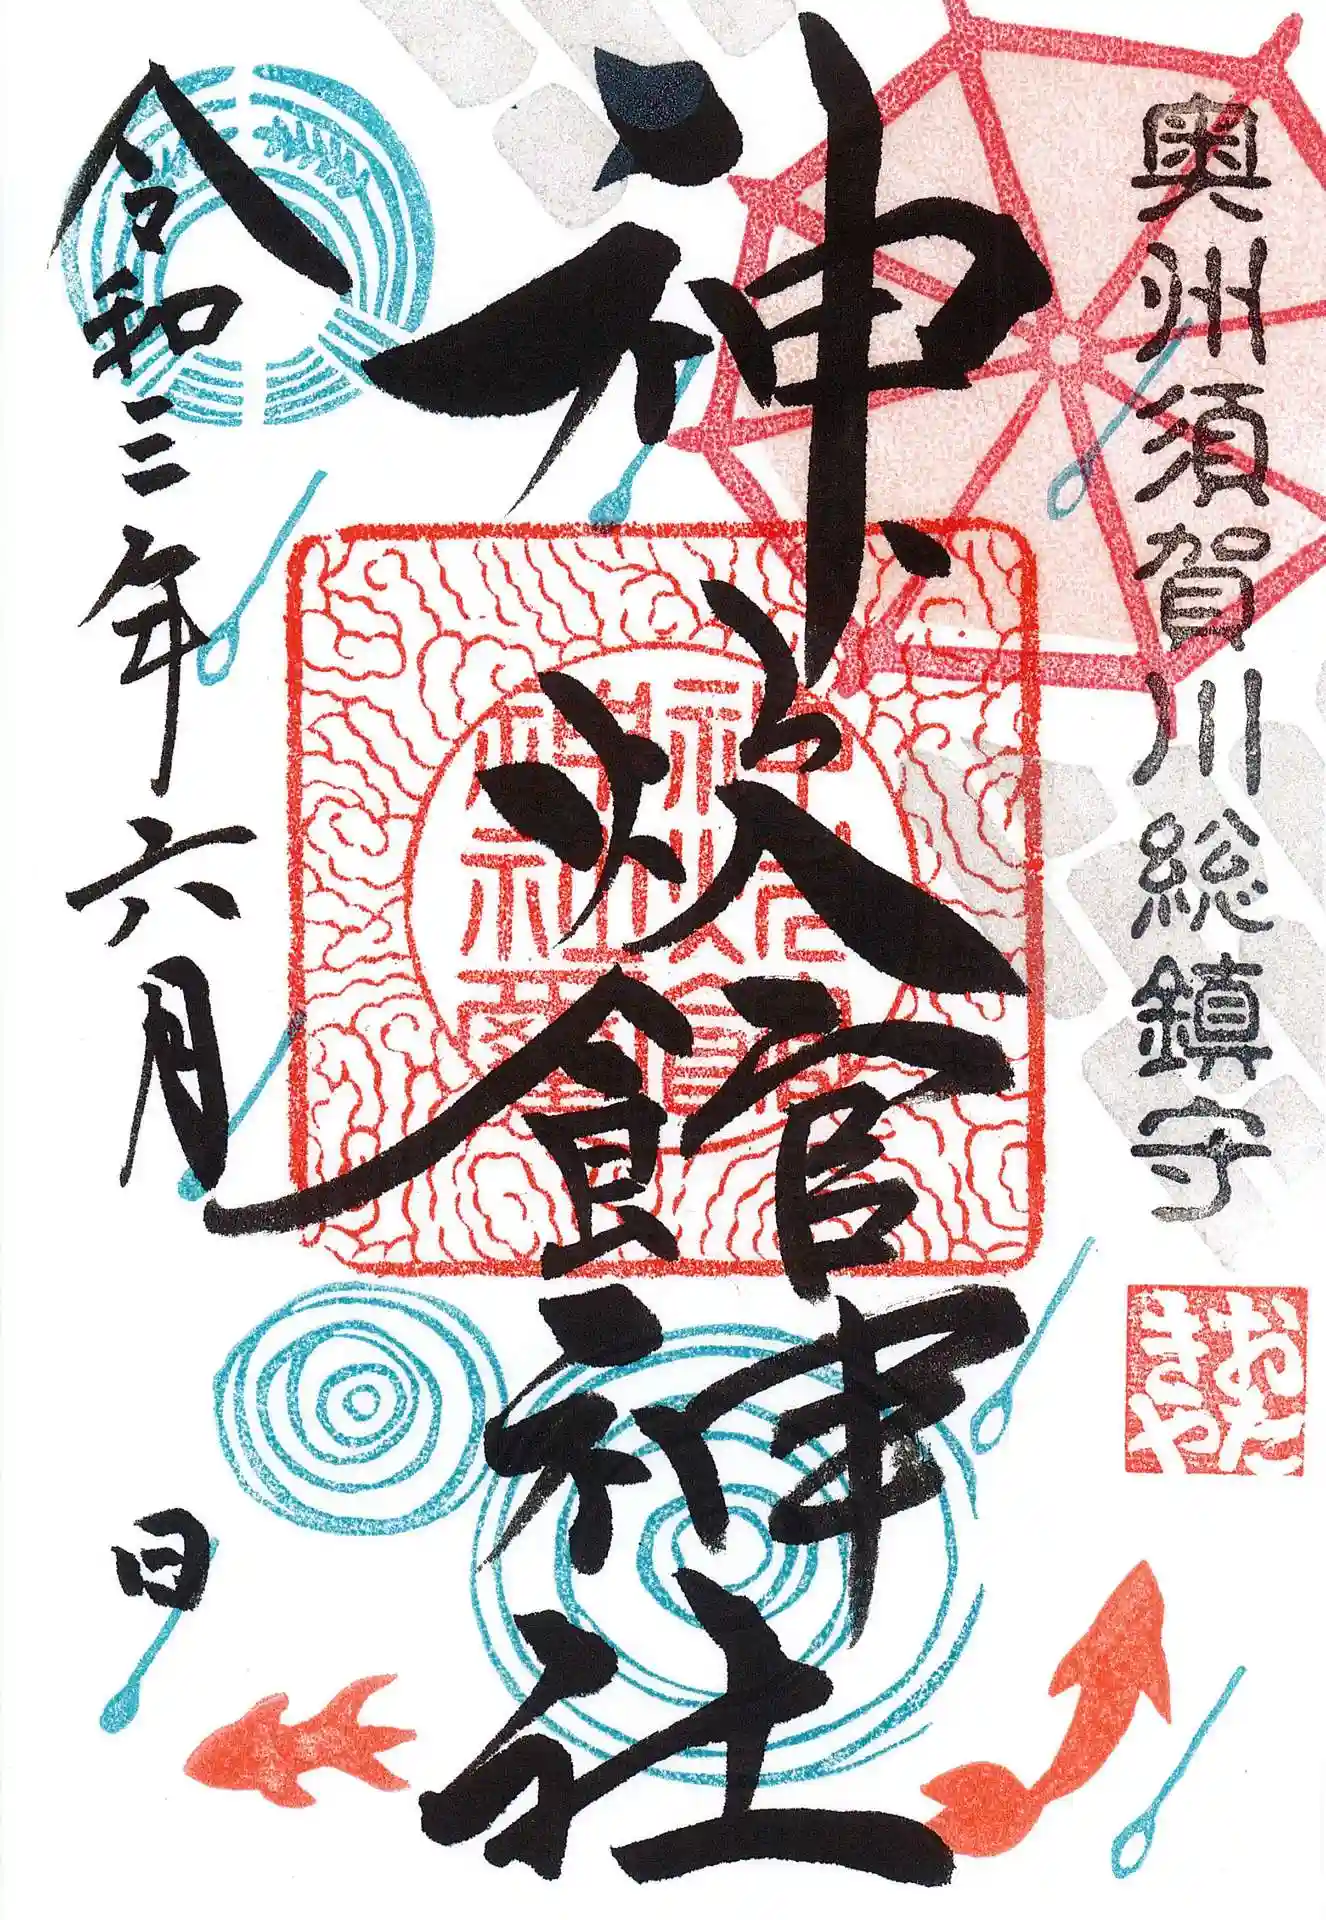 奥州須賀川総鎮守
おたきや
神炊館神社
令和三年六月 日